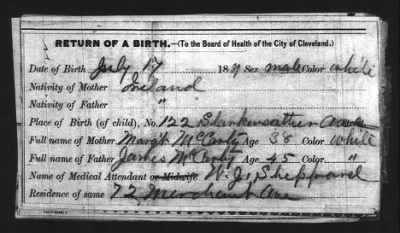 RETURN OF A BIRTH.—(To the Board of Health of the City of Cleveland.)
Date of Birth July 17 189 Sex male Color white
Nativity of Mother Ireland
Nativity of Father "
Place of Birth (of child), No. 122 Starkweather Avenue
Full name of Mother Margt McCarty Age 38 Color white
Full name of Father James McCarty Age 45 Color "
Name of Medical Attendant or Midwife W. J. Sheppard
Residence of same 72 Merchant Ave